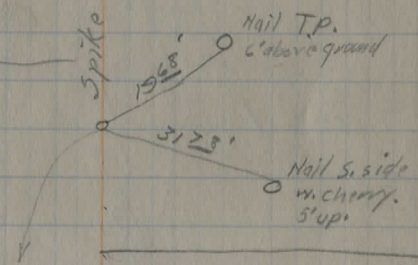 Nail T.P.
6' above ground
Spike
19 68'
31 78'
Nail S. side
w. cherry.
5' up.